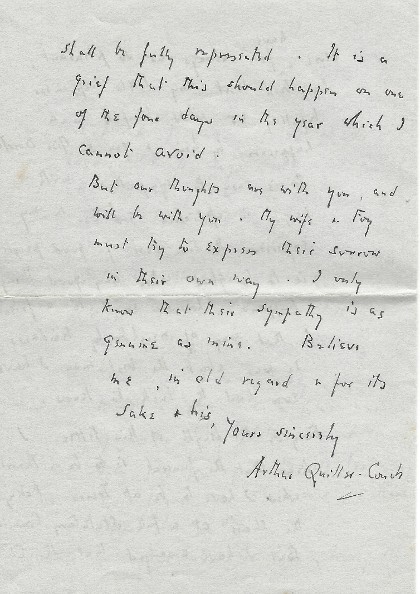 shall be fully represented. It is a
grief that this should happen on one
of the four days in the year which I
cannot avoid.
But our thoughts are with you, and
will be with you. My wife & Foy
must try to express their sorrow
in their own way. I only
know that their sympathy is as
genuine as mine. Believe
me, in old regard & for its
sake & his, Yours sincerely
Arthur Quiller-Couch